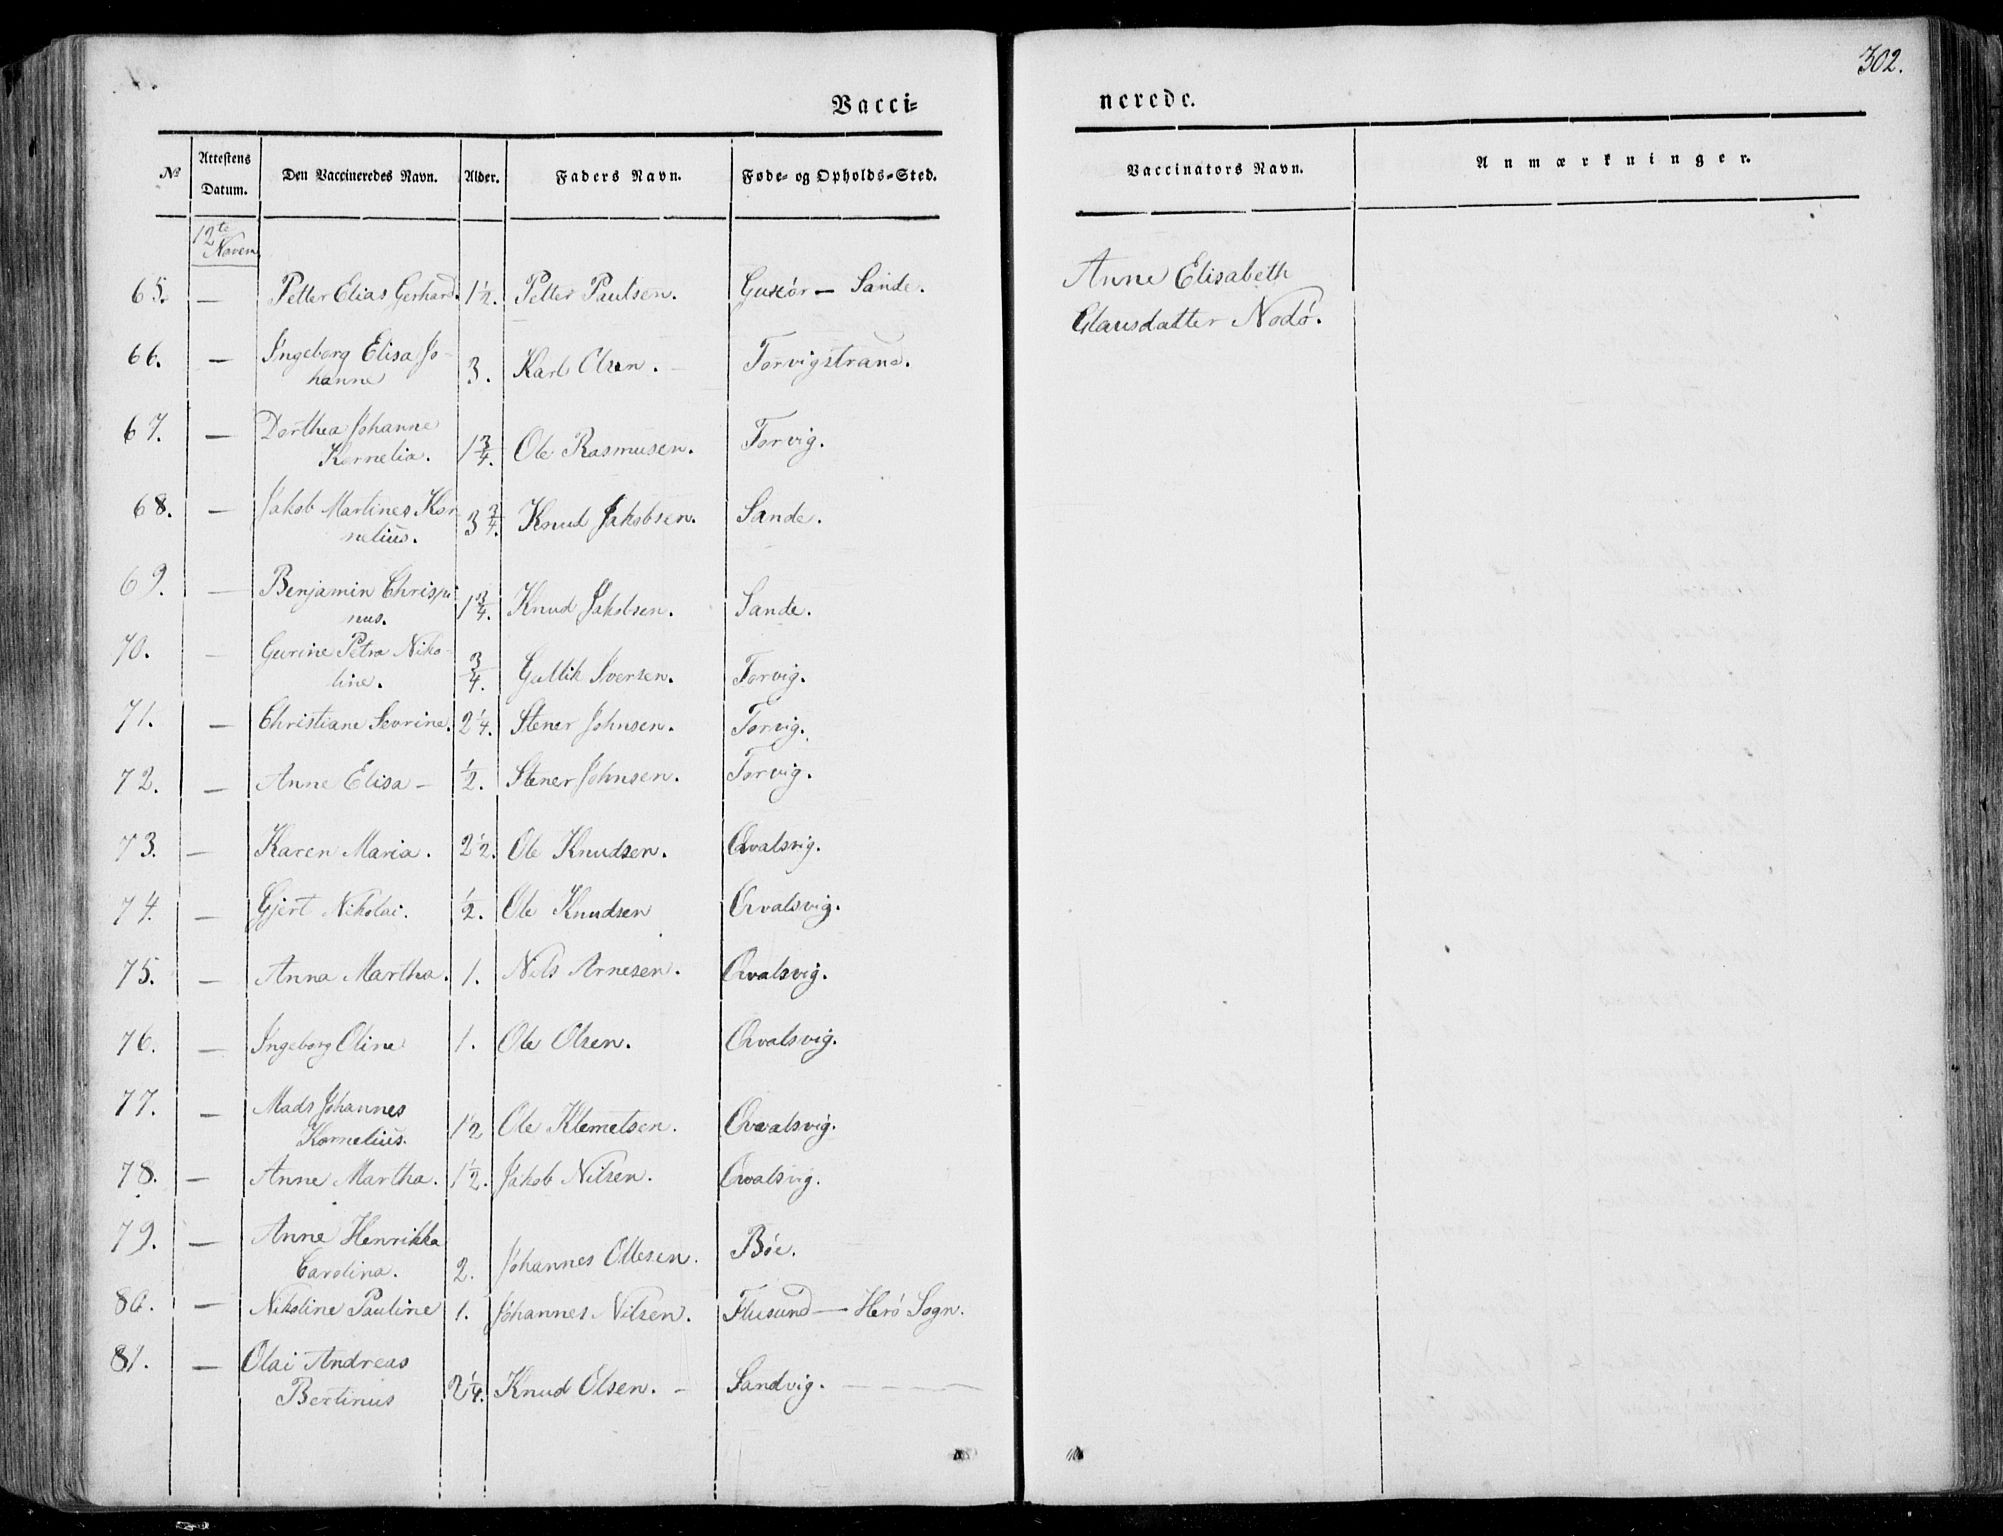 302.
Vacci=
nerede.
No Attestens Datum. Den Vaccineredes Navn. Alder. Faders Navn. Føde- og Opholds-Sted. Vaccinators Navn. Anmærkninger.
12te Novem
65. — Petter Elias Gerhard. 1½. Petter Paulsen. Gurskør — Sande. Anne Elisabeth
Clausdatter Nodø.
66. — Ingeborg Elisa Jo-
hanne 3. Karl Olsen. Torvigstrand.
67. — Dorthea Johanne
Kornelia. 1¾. Ole Rasmusen. Torvig.
68. — Jakob Martines Kor-
nelius. 3¾. Knud Jakobsen. Sande.
69. — Benjamin Chrispi
nus. 1¾. Knud Jakobsen. Sande.
70. — Gurine Petra Niko-
line. ¾. Gullik Iversen. Torvig.
71. — Christiane Sevrine. 2¼. Stener Johnsen. Torvig.
72. — Anne Elisa — ½. Stener Johnsen. Torvig.
73. — Karen Maria. 2½. Ole Knudsen. Qvalsvig.
74. — Gjert Nikolai. ½. Ole Knudsen Qvalsvig.
75. — Anna Martha. 1. Nils Arnesen. Qvalsvig.
76. — Ingeborg Oline 1. Ole Olsen. Qvalsvig.
77. — Mads Johannes
Kornelius. 1½ Ole Klemetsen. Qvalsvig.
78. — Anne Martha. 1½. Jakob Nilsen. Qvalsvig.
79. — Anne Henrikka
Carolina. 2. Johannes Ollesen. Bøe.
80. — Nikoline Pauline 1. Johannes Nilsen. Flusund — Herø Sogn.
81. — Olai Andreas
Bertinus 2¼. Knud Olsen. — Sandvig. — — — —